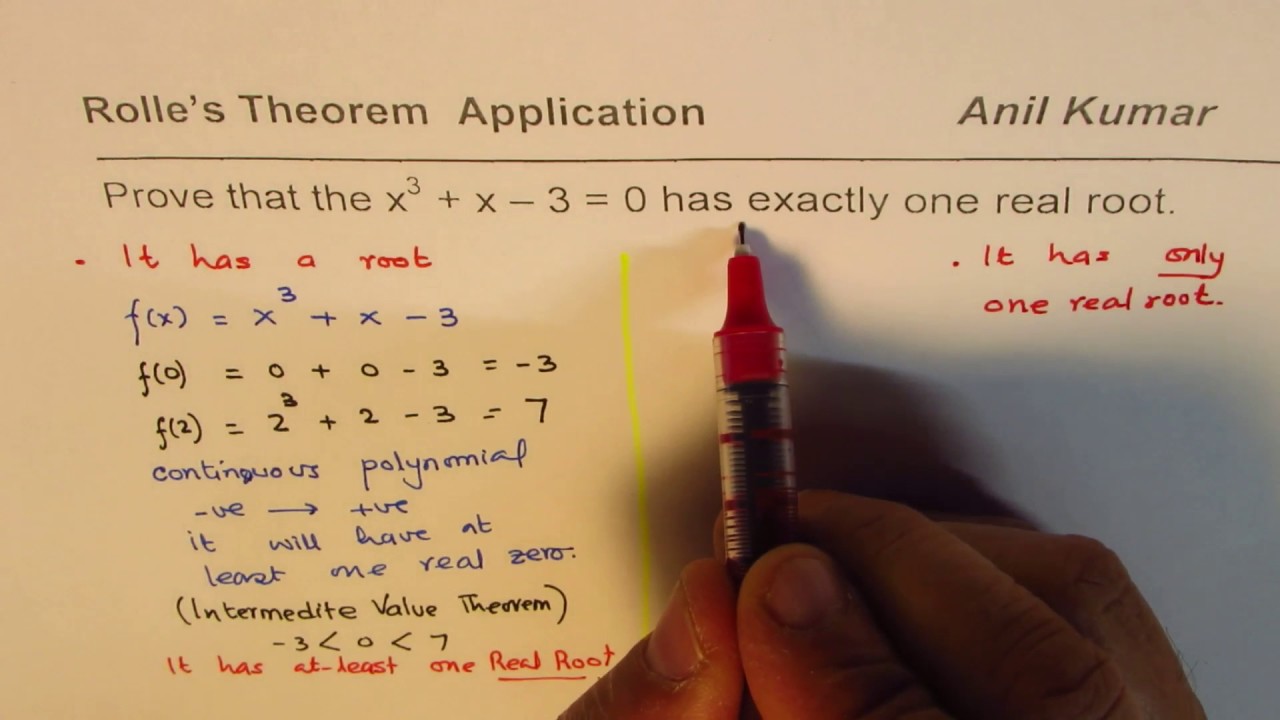 Rolle's Theorem Application Anil Kumar
Prove that the x³ + x – 3 = 0 has exactly one real root.
. It has a root
f(x) = x³ + x - 3
f(0) = 0 + 0 - 3 = -3
f(2) = 2³ + 2 - 3 = 7
continuous polynomial
-ve → +ve
it will have at
least one real zero.
(Intermedite Value Theorem)
-3 < 0 < 7
It has at-least one Real Root
. It has only
one real root.